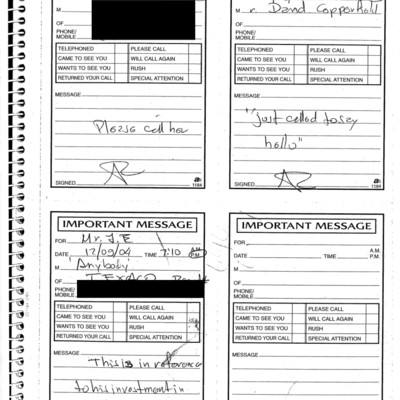 M
OF
PHONE/
MOBILE
TELEPHONED PLEASE CALL
CAME TO SEE YOU WILL CALL AGAIN
WANTS TO SEE YOU RUSH
RETURNED YOUR CALL SPECIAL ATTENTION
MESSAGE
Please call her
SIGNED
1184
M r. David Copperfield
OF
PHONE/
MOBILE
TELEPHONED PLEASE CALL
CAME TO SEE YOU WILL CALL AGAIN
WANTS TO SEE YOU RUSH
RETURNED YOUR CALL SPECIAL ATTENTION
MESSAGE
"just called to say
hello"
SIGNED
1184
IMPORTANT MESSAGE
FOR Mr. J.E
DATE 12/09/04 TIME 7:10 A.M. P.M.
M Anybody
OF TEXACO
PHONE/
MOBILE
TELEPHONED PLEASE CALL
CAME TO SEE YOU WILL CALL AGAIN
WANTS TO SEE YOU RUSH
RETURNED YOUR CALL SPECIAL ATTENTION
MESSAGE
This is in reference
to his investment in
IMPORTANT MESSAGE
FOR
DATE TIME A.M. P.M.
M
OF
PHONE/
MOBILE
TELEPHONED PLEASE CALL
CAME TO SEE YOU WILL CALL AGAIN
WANTS TO SEE YOU RUSH
RETURNED YOUR CALL SPECIAL ATTENTION
MESSAGE